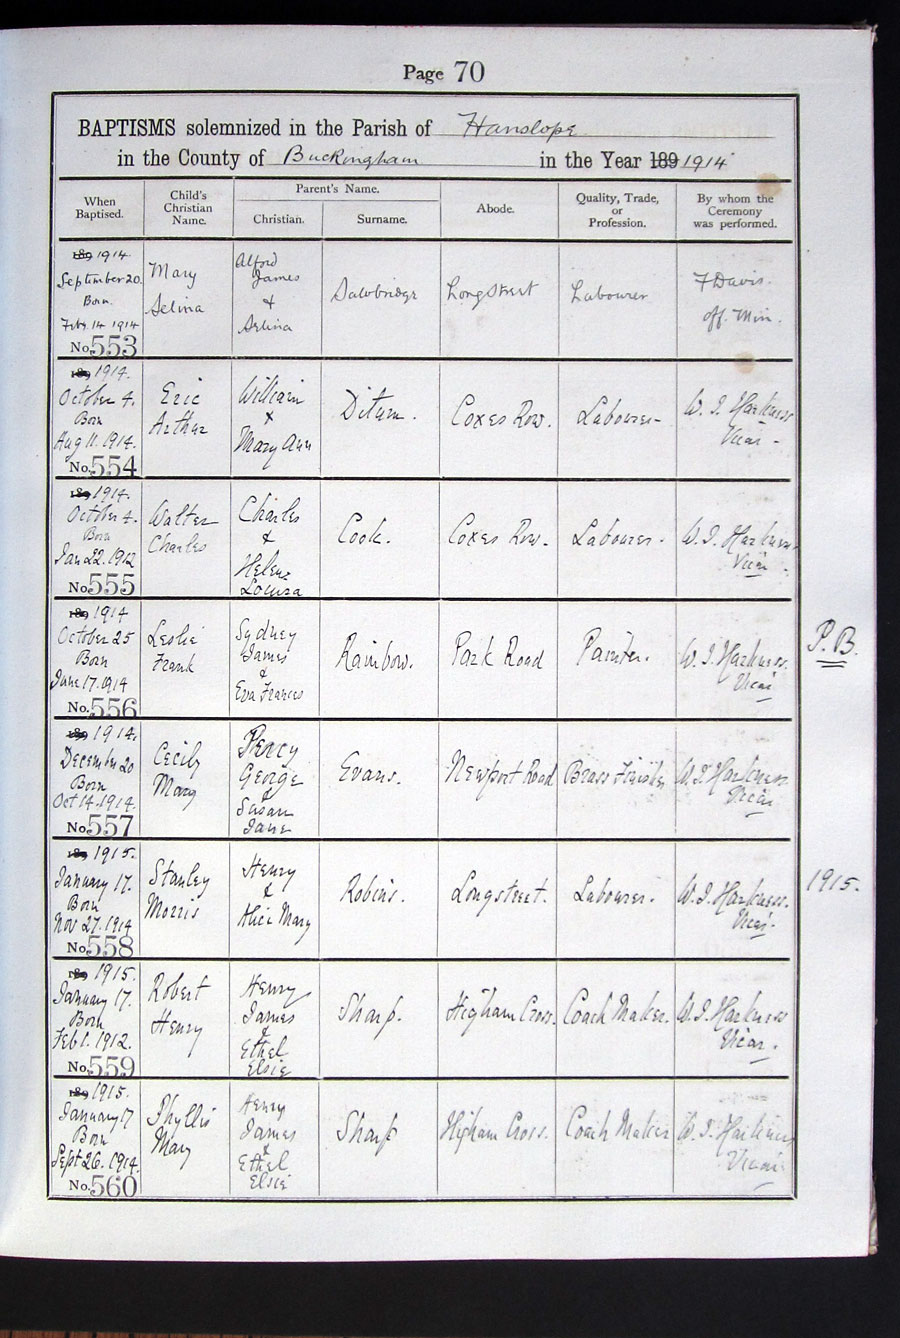 Page 70
BAPTISMS solemnized in the Parish of Hanslope
in the County of Buckingham in the Year 189 1914
When Baptised.
Child's Christian Name.
Parent's Name.
Christian.
Surname.
Abode.
Quality, Trade, or Profession.
By whom the Ceremony was performed.
189 1914
September 20.
Born
Feby. 14 1914
No. 553
Mary
Selina
Alfred
James
&
Selina
Sawbridge
Longstreet
Labourer
F Davis.
Off. Min.
189 1914.
October 4.
Born
Aug 11. 1914.
No. 554
Eric
Arthur
William
&
Mary Ann
Ditum.
Coxes Row.
Labourer-
W. J. Harkness
Vicar -
189 1914.
October 4.
Born
Jan 22. 1912
No. 555
Walter
Charles
Charles
&
Helena
Louisa
Cook.
Coxes Row.
Labourer.
W. J. Harkness
Vicar
189 1914
October 25
Born
June 17. 1914
No. 556
Leslie
Frank
Sydney
James
&
Eva Frances
Rainbow.
Park Road
Painter.
W. J. Harkness.
Vicar
P.B.
189 1914.
December 20
Born
Oct 14. 1914.
No. 557
Cecily
Mary
Percy
George
&
Susan
Jane
Evans.
Newport Road
Brass Finisher
W. J. Harkness.
Vicar
189 1915.
January 17.
Born
Nov 27. 1914
No. 558
Stanley
Morris
Henry
&
Alice Mary
Robins.
Longstreet.
Labourer.
W. J. Harkness.
Vicar.
1915.
189 1915.
January 17.
Born
Feb 1. 1912.
No. 559
Robert
Henry
Henry
James
&
Ethel
Elsie
Sharp.
Higham Cross.
Coach Maker.
W. J. Harkness
Vicar.
189 1915.
January 17
Born
Sept 26. 1914.
No. 560
Phyllis
Mary
Henry
James
&
Ethel
Elsie
Sharp
Higham Cross.
Coach Maker
W. J. Harkness
Vicar